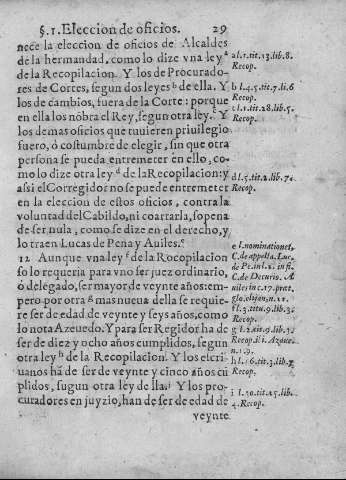 §.1. Eleccion de oficios. 29
nece la eleccion de oficios de Alcaldes
de la hermandad, como lo dize vna ley a
de la Recopilacion. Y los de Procurado-
res de Cortes, segun dos leyes b de ella. Y
los de cambios, fuera de la Corte: porque
en ella los nõbra el Rey, segun otra ley. c Y
los demas oficios que tuuieren priuilegio
fuero, ó costumbre de elegir, sin que otra
persona se pueda entremeter en ello, co-
mo lo dize otra ley d de la Recopilacion: y
assi el Corregidor no se puede entremeter
en la eleccion de estos oficios, contra la
voluntad del Cabildo, ni coartarla, so pena
de ser nula, como se dize en el derecho, y
lo traen Lucas de Pena y Auiles. e
12 Aunque vna ley f de la Rocopilacion
solo requeria para vno ser juez ordinario,
ó delegado, ser mayor de veynte años: em-
pero por otra g mas nueua della se requie-
re ser de edad de veynte y seys años, como
lo nota Azeuedo. Y para ser Regidor ha de
ser de diez y ocho años cumplidos, segun
otra ley h de la Recopilacion. Y los escri-
uanos hã de ser de veynte y cinco años cũ
plidos, sugun otra ley de lla. i Y los pro-
curadores en juyzio, han de ser de edad de
veynte
a l.1.tit.13.lib.8.
Recop.
b l.4.5.tit.7.li.6
Recop.
c l.1.tit.18.lib.5.
Recop.
d l.5.tit.2.lib.7.
Recop.
e l.nominationes,
C.de appella. Luc.
de Pe.inl.2. in fi.
C.de Decurio. A
uiles inc.17. præt.
glo.elijan, n.12.
f l.3.titu.9.lib.3.
g l.2.tit.9.lib.3.
Recop.
n.19.
h l.16.tit.3.lib.7
Recop.
i l.20.tit.25.lib.
4.Recop.